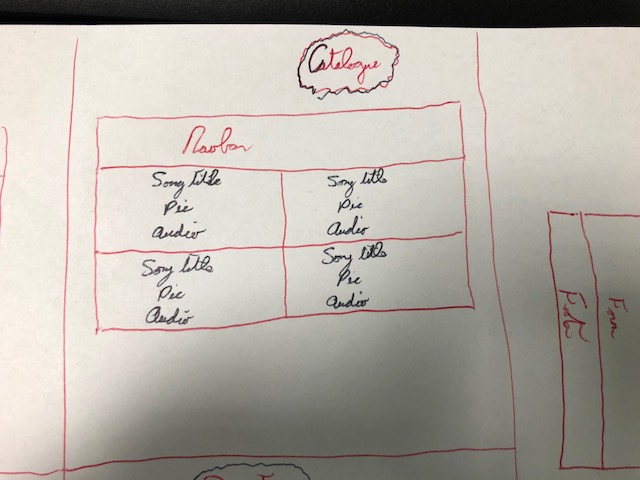 Catalogue
Navbar
Song title
Pic
audio
Song title
Pic
Audio
Song title
Pic
audio
Song title
Pic
audio